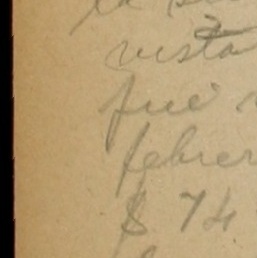 la
vista
fué
febrer
$ 74